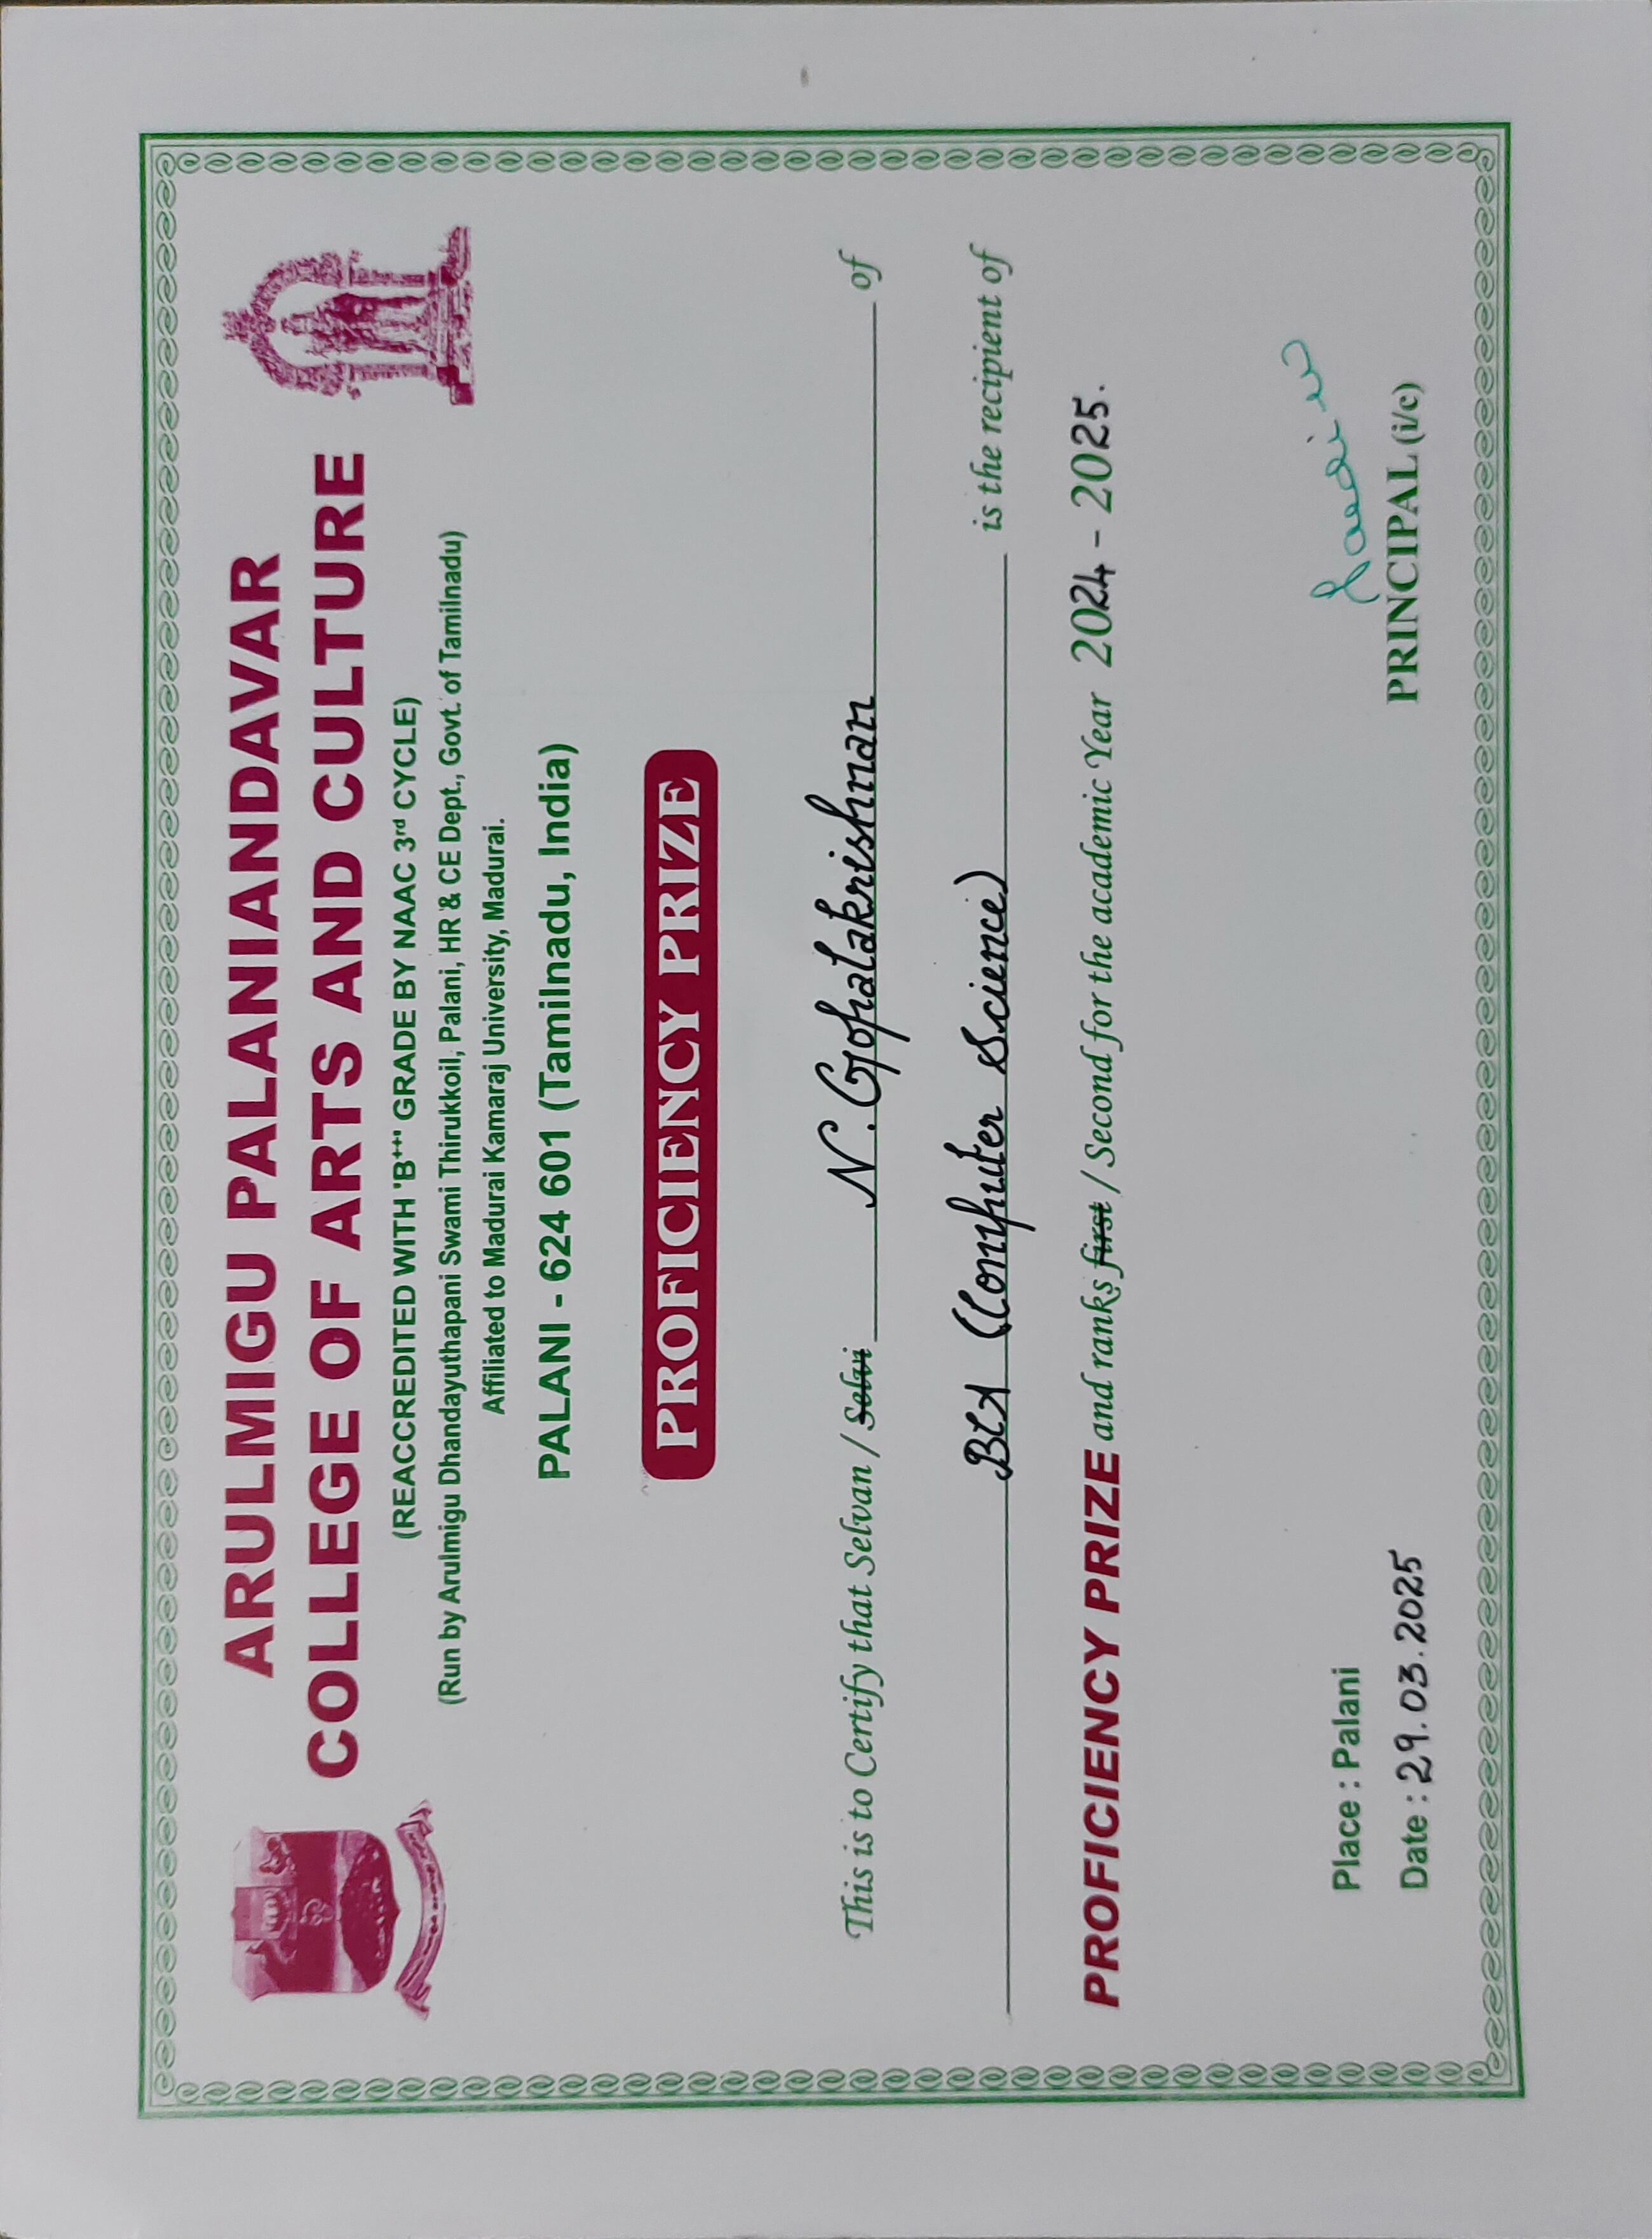 ARULMIGU PALANIANDAVAR
COLLEGE OF ARTS AND CULTURE
(REACCREDITED WITH 'B++' GRADE BY NAAC 3rd CYCLE)
(Run by Arulmigu Dhandayuthapani Swami Thirukkoil, Palani, HR & CE Dept., Govt. of Tamilnadu)
Affiliated to Madurai Kamaraj University, Madurai.
PALANI - 624 601 (Tamilnadu, India)
PROFICIENCY PRIZE
This is to Certify that Selvan / Selvi N. Gopalakrishnan of
BCA (Computer Science) is the recipient of
PROFICIENCY PRIZE and ranks first / Second for the academic Year 2024 - 2025.
Place : Palani
Date : 29.03.2025
PRINCIPAL (i/c)